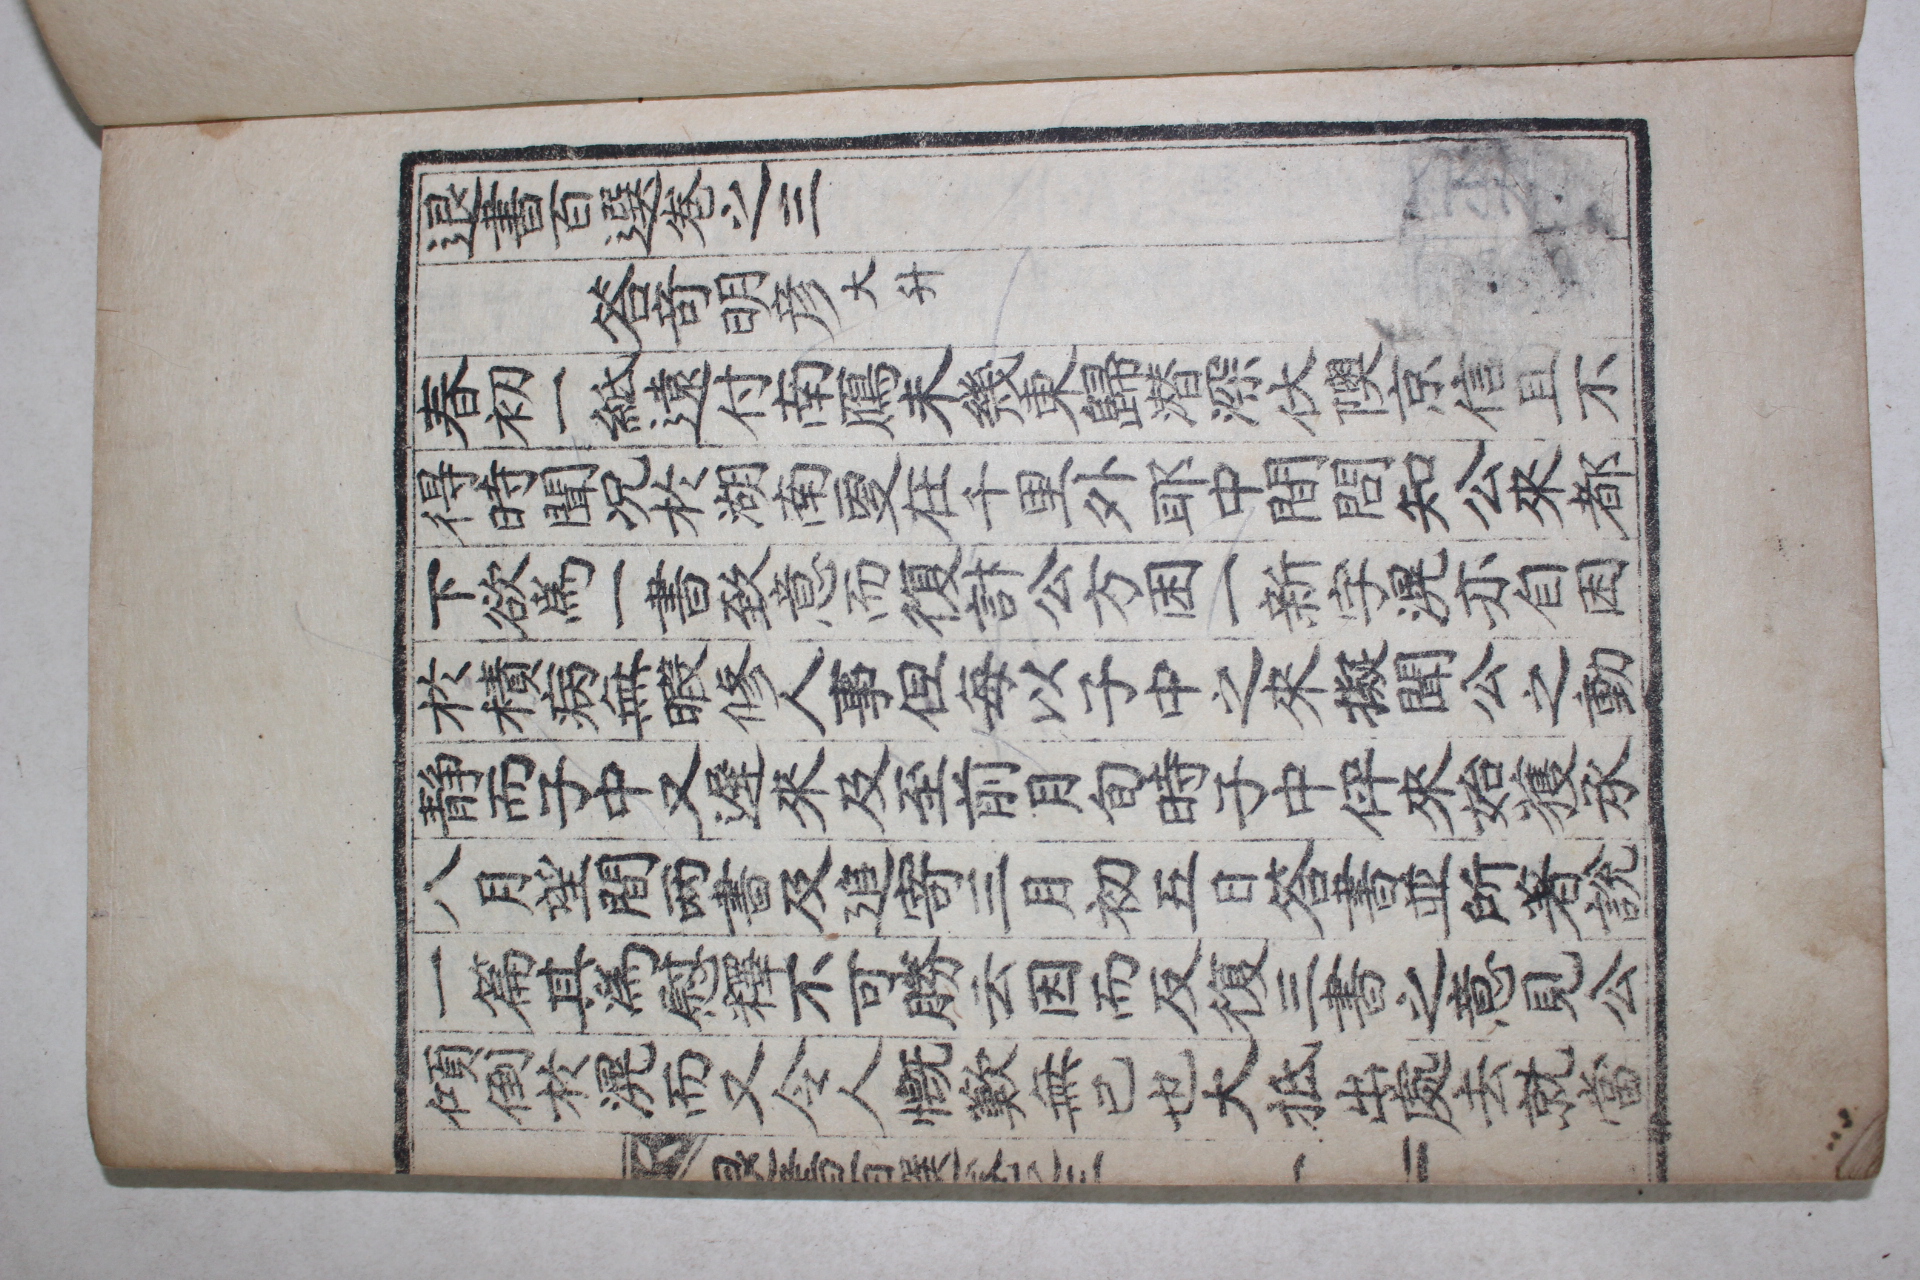 退書百選卷之三
答奇明彦大升
春初一紙遠付南鴈未幾東歸潜深伏隩京信且不
得時聞况於湖南敻在千里外耶中間問知公來都
下欲爲一書致意而復計公方困一新字滉亦自困
於積病無暇修人事但每以子中之來擬聞公之動
静而子中又遲來及至前月旬時子中伻來始獲承
八月望間两書及追寄三月初五日答書並所著說
一篇其爲慰釋不可勝云因而反復三書之意見公
傾倒於滉而又令人慨歎無已也大抵出處去就當
退書百選卷之三
一